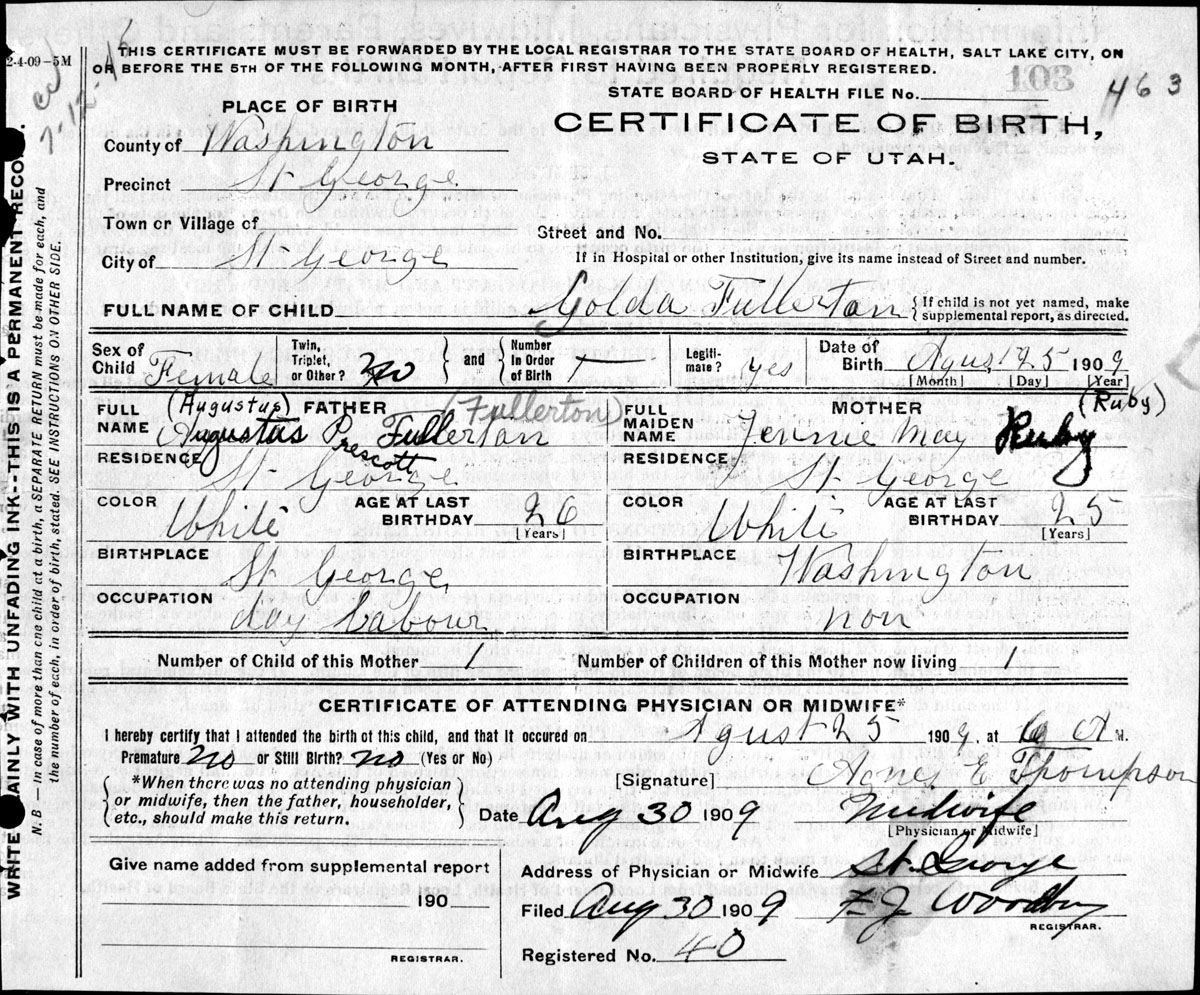 2-4-09-5M
THIS CERTIFICATE MUST BE FORWARDED BY THE LOCAL REGISTRAR TO THE STATE BOARD OF HEALTH, SALT LAKE CITY, ON
OR BEFORE THE 5TH OF THE FOLLOWING MONTH, AFTER FIRST HAVING BEEN PROPERLY REGISTERED.
STATE BOARD OF HEALTH FILE No. 103 463
PLACE OF BIRTH
CERTIFICATE OF BIRTH,
STATE OF UTAH.
County of Washington
Precinct St George
Town or Village of
Street and No.
City of St George
If in Hospital or other Institution, give its name instead of Street and number.
FULL NAME OF CHILD Golda Fullerton {If child is not yet named, make
supplemental report, as directed.
Sex of Child Female Twin, Triplet, or Other? No } and { Number In Order of Birth Legitimate? yes Date of Birth Agust 25 1909
[Month] [Day] [Year]
FULL NAME (Augustus) FATHER (Fullerton)
Augustus P Fullerton
Prescott
RESIDENCE St George
COLOR White AGE AT LAST BIRTHDAY 26 [Years]
BIRTHPLACE St George
OCCUPATION day Labour
FULL MAIDEN NAME MOTHER (Ruby)
Jennie May Ruby
RESIDENCE St George
COLOR White AGE AT LAST BIRTHDAY 25 [Years]
BIRTHPLACE Washington
OCCUPATION non
Number of Child of this Mother 1 Number of Children of this Mother now living 1
CERTIFICATE OF ATTENDING PHYSICIAN OR MIDWIFE*
I hereby certify that I attended the birth of this child, and that it occured on Agust 25 1909, at A M.
Premature No or Still Birth? No (Yes or No)
{ *When there was no attending physician
or midwife, then the father, householder,
etc., should make this return. }
[Signature] Agnes E Thompson
Date Aug 30 1909 Midwife
[Physician or Midwife]
Give name added from supplemental report
190
REGISTRAR.
Address of Physician or Midwife St. George
Filed Aug 30 1909 F. J. Woodbury
REGISTRAR.
Registered No. 40
WRITE PLAINLY WITH UNFADING INK--THIS IS A PERMANENT RECORD.
N. B—In case of more than one child at a birth, a SEPARATE RETURN must be made for each, and
the number of each, in order of birth, stated. SEE INSTRUCTIONS ON OTHER SIDE.